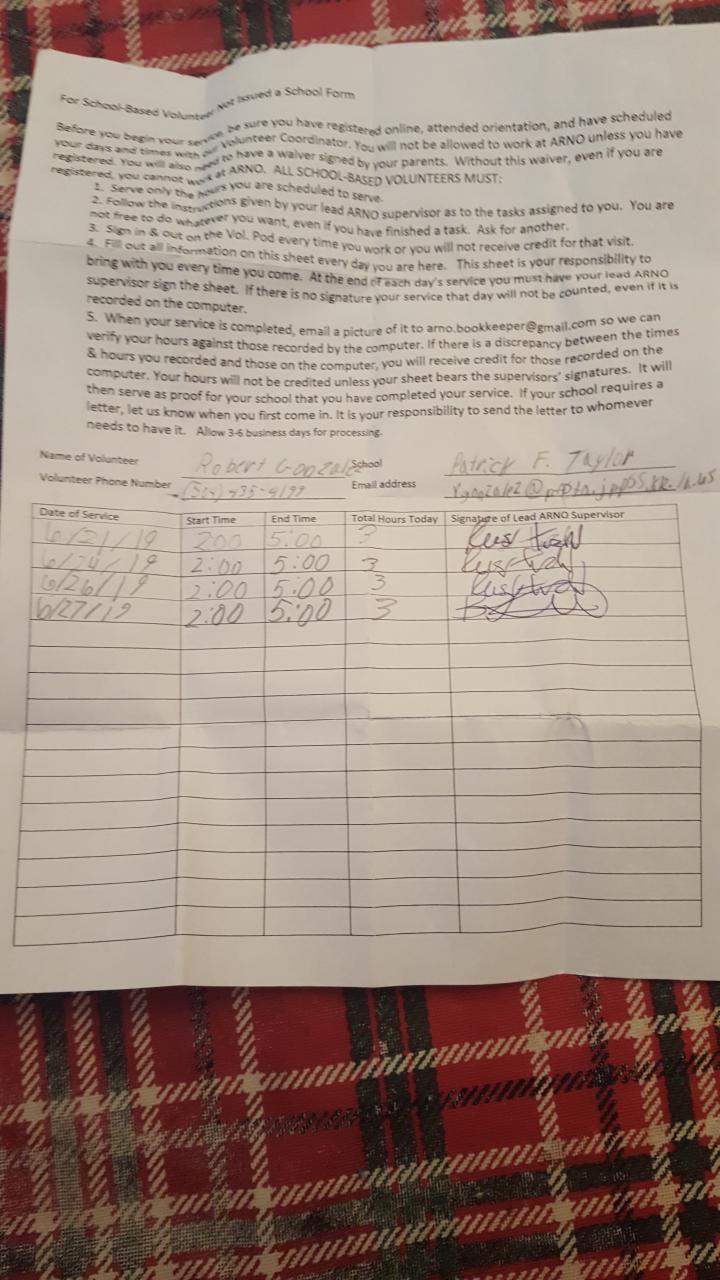 For School-Based Volunteer Not Issued a School Form
Before you begin your service, be sure you have registered online, attended orientation, and have scheduled
your days and times with our Volunteer Coordinator. You will not be allowed to work at ARNO unless you have
registered. You will also need to have a waiver signed by your parents. Without this waiver, even if you are
registered, you cannot work at ARNO. ALL SCHOOL-BASED VOLUNTEERS MUST:
1. Serve only the hours you are scheduled to serve.
2. Follow the instructions given by your lead ARNO supervisor as to the tasks assigned to you. You are
not free to do whatever you want, even if you have finished a task. Ask for another.
3. Sign in & out on the Vol. Pod every time you work or you will not receive credit for that visit.
4. Fill out all information on this sheet every day you are here. This sheet is your responsibility to
bring with you every time you come. At the end of each day's service you must have your lead ARNO
supervisor sign the sheet. If there is no signature your service that day will not be counted, even if it is
recorded on the computer.
5. When your service is completed, email a picture of it to arno.bookkeeper@gmail.com so we can
verify your hours against those recorded by the computer. If there is a discrepancy between the times
& hours you recorded and those on the computer, you will receive credit for those recorded on the
computer. Your hours will not be credited unless your sheet bears the supervisors' signatures. It will
then serve as proof for your school that you have completed your service. If your school requires a
letter, let us know when you first come in. It is your responsibility to send the letter to whomever
needs to have it. Allow 3-6 business days for processing.
Name of Volunteer Robert Gonzalez School Patrick F. Taylor
Volunteer Phone Number Email address
Date of Service Start Time End Time Total Hours Today Signature of Lead ARNO Supervisor
6/21/19 200 5:00 3
6/24/19 2:00 5:00 3
6/26/19 2:00 5:00 3
6/27/19 2:00 5:00 3